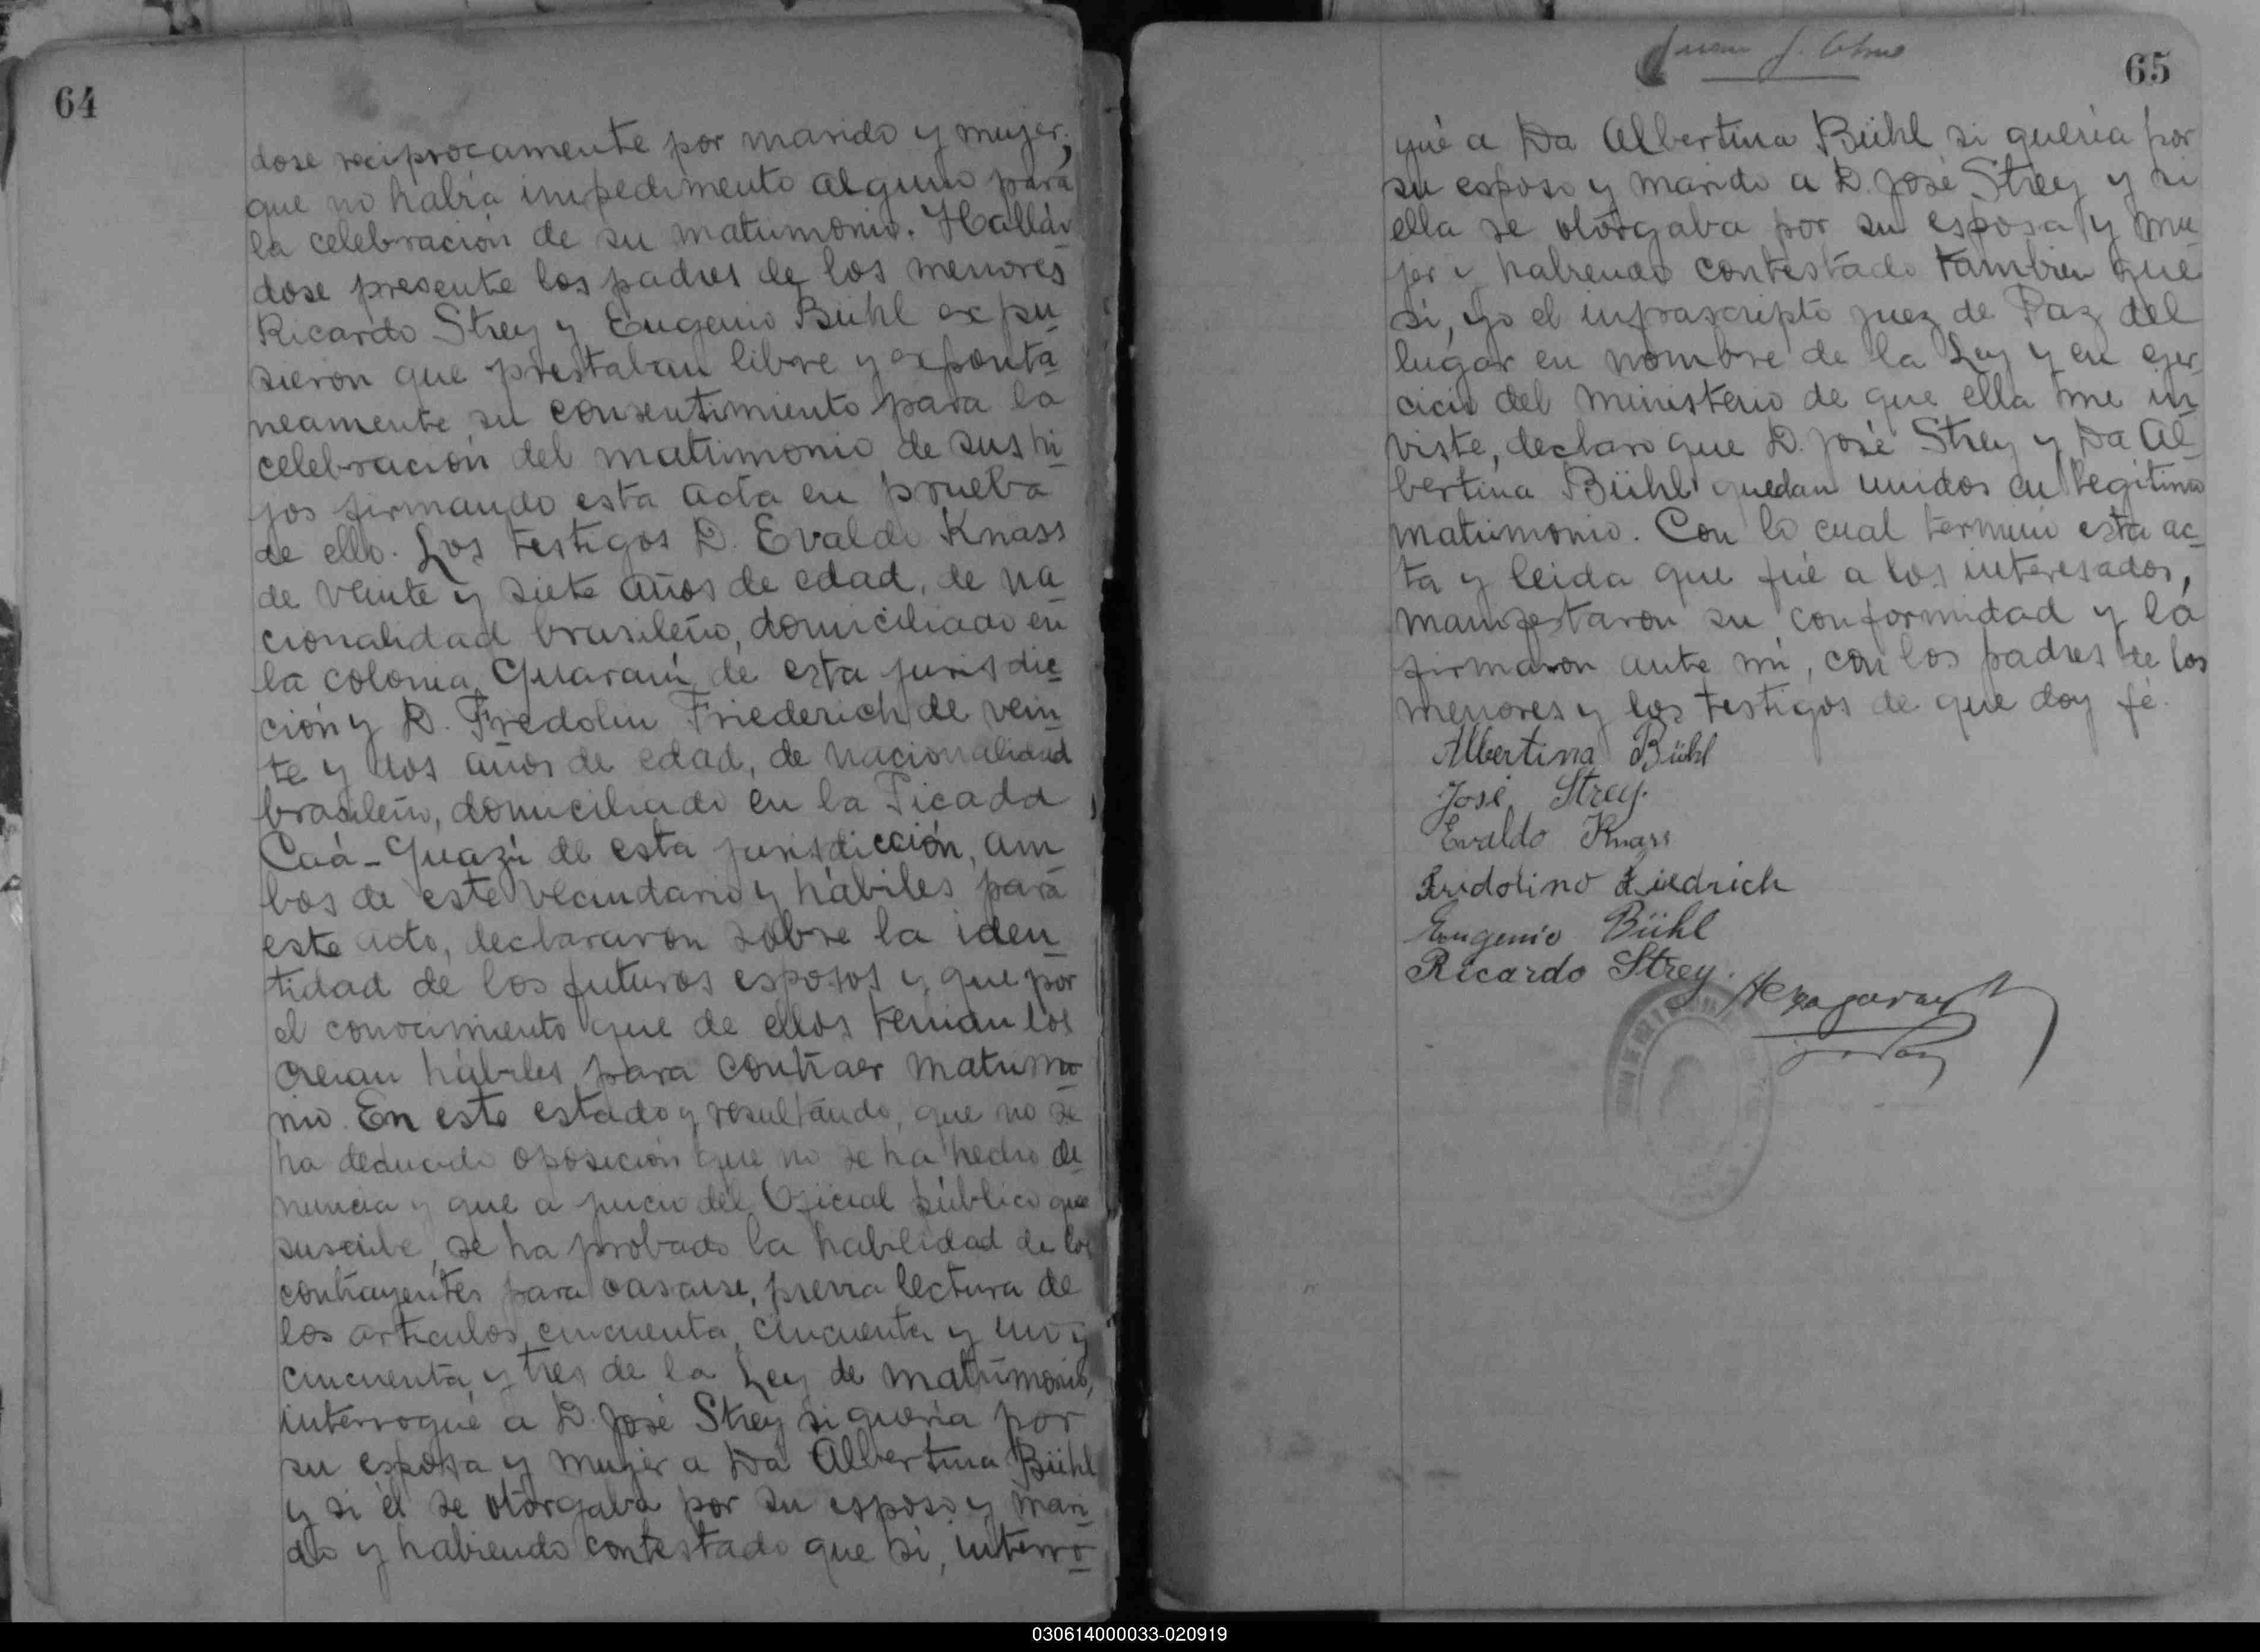 64
dose reciprocamente por marido y mujer;
que no había impedimento alguno para
la celebración de su matrimonio. Hallán
dose presente los padres de los menores
Ricardo Strey y Eugenio Bühl expu
sieron que prestaban libre y exponta
neamente su consentimiento para la
celebración del matrimonio de sus hi
jos firmando esta acta en prueba
de ello. Los testigos D. Evaldo Knass
de veinte y siete años de edad, de na
cionalidad brasileño, domiciliado en
la colonia Guaraní de esta jurisdic
ción y D. Fredolin Friederich de vein
te y dos años de edad, de nacionalidad
brasileño, domiciliado en la Picada
Caá-Guazú de esta jurisdicción, am
bos de este vecindario y hábiles para
este acto, declararon sobre la iden
tidad de los futuros esposos y que por
el conocimiento que de ellos tenian los
creian hábiles para contraer matrimo
nio. En este estado y resultando, que no se
ha deducido oposición que no se ha hecho de
nuncia y que a juicio del Oficial público que
suscribe, se ha probado la habilidad de los
contrayentes para casarse, previa lectura de
los articulos cincuenta, cincuenta y uno y
cincuenta y tres de la Ley de matrimonio,
interrogué a D. José Strey si queria por
su esposa y mujer a Da Albertina Bühl
y si él se otorgaba por su esposo y mari
do y habiendo contestado que si, interro
65
gué a Da Albertina Bühl si quería por
su esposo y marido a D. José Strey y si
ella se otorgaba por su esposa y mu
jer y habiendo contestado tambien que
si, yo el infrascripto juez de Paz del
lugar en nombre de la Ley y en ejer
cicio del ministerio de que ella me in
viste, declaro que D. José Strey y Da Al
bertina Bühl quedan unidos en legitimo
matrimonio. Con lo cual terminó esta ac
ta y leida que fué a los interesados,
manifestaron su conformidad y la
firmaron ante mí, con los padres de los
menores y los testigos de que doy fé.
Albertina Bühl
José Strey.
Evaldo Knass
Fridolino Friedrich
Eugenio Bühl
Ricardo Strey.
030614000033-020919